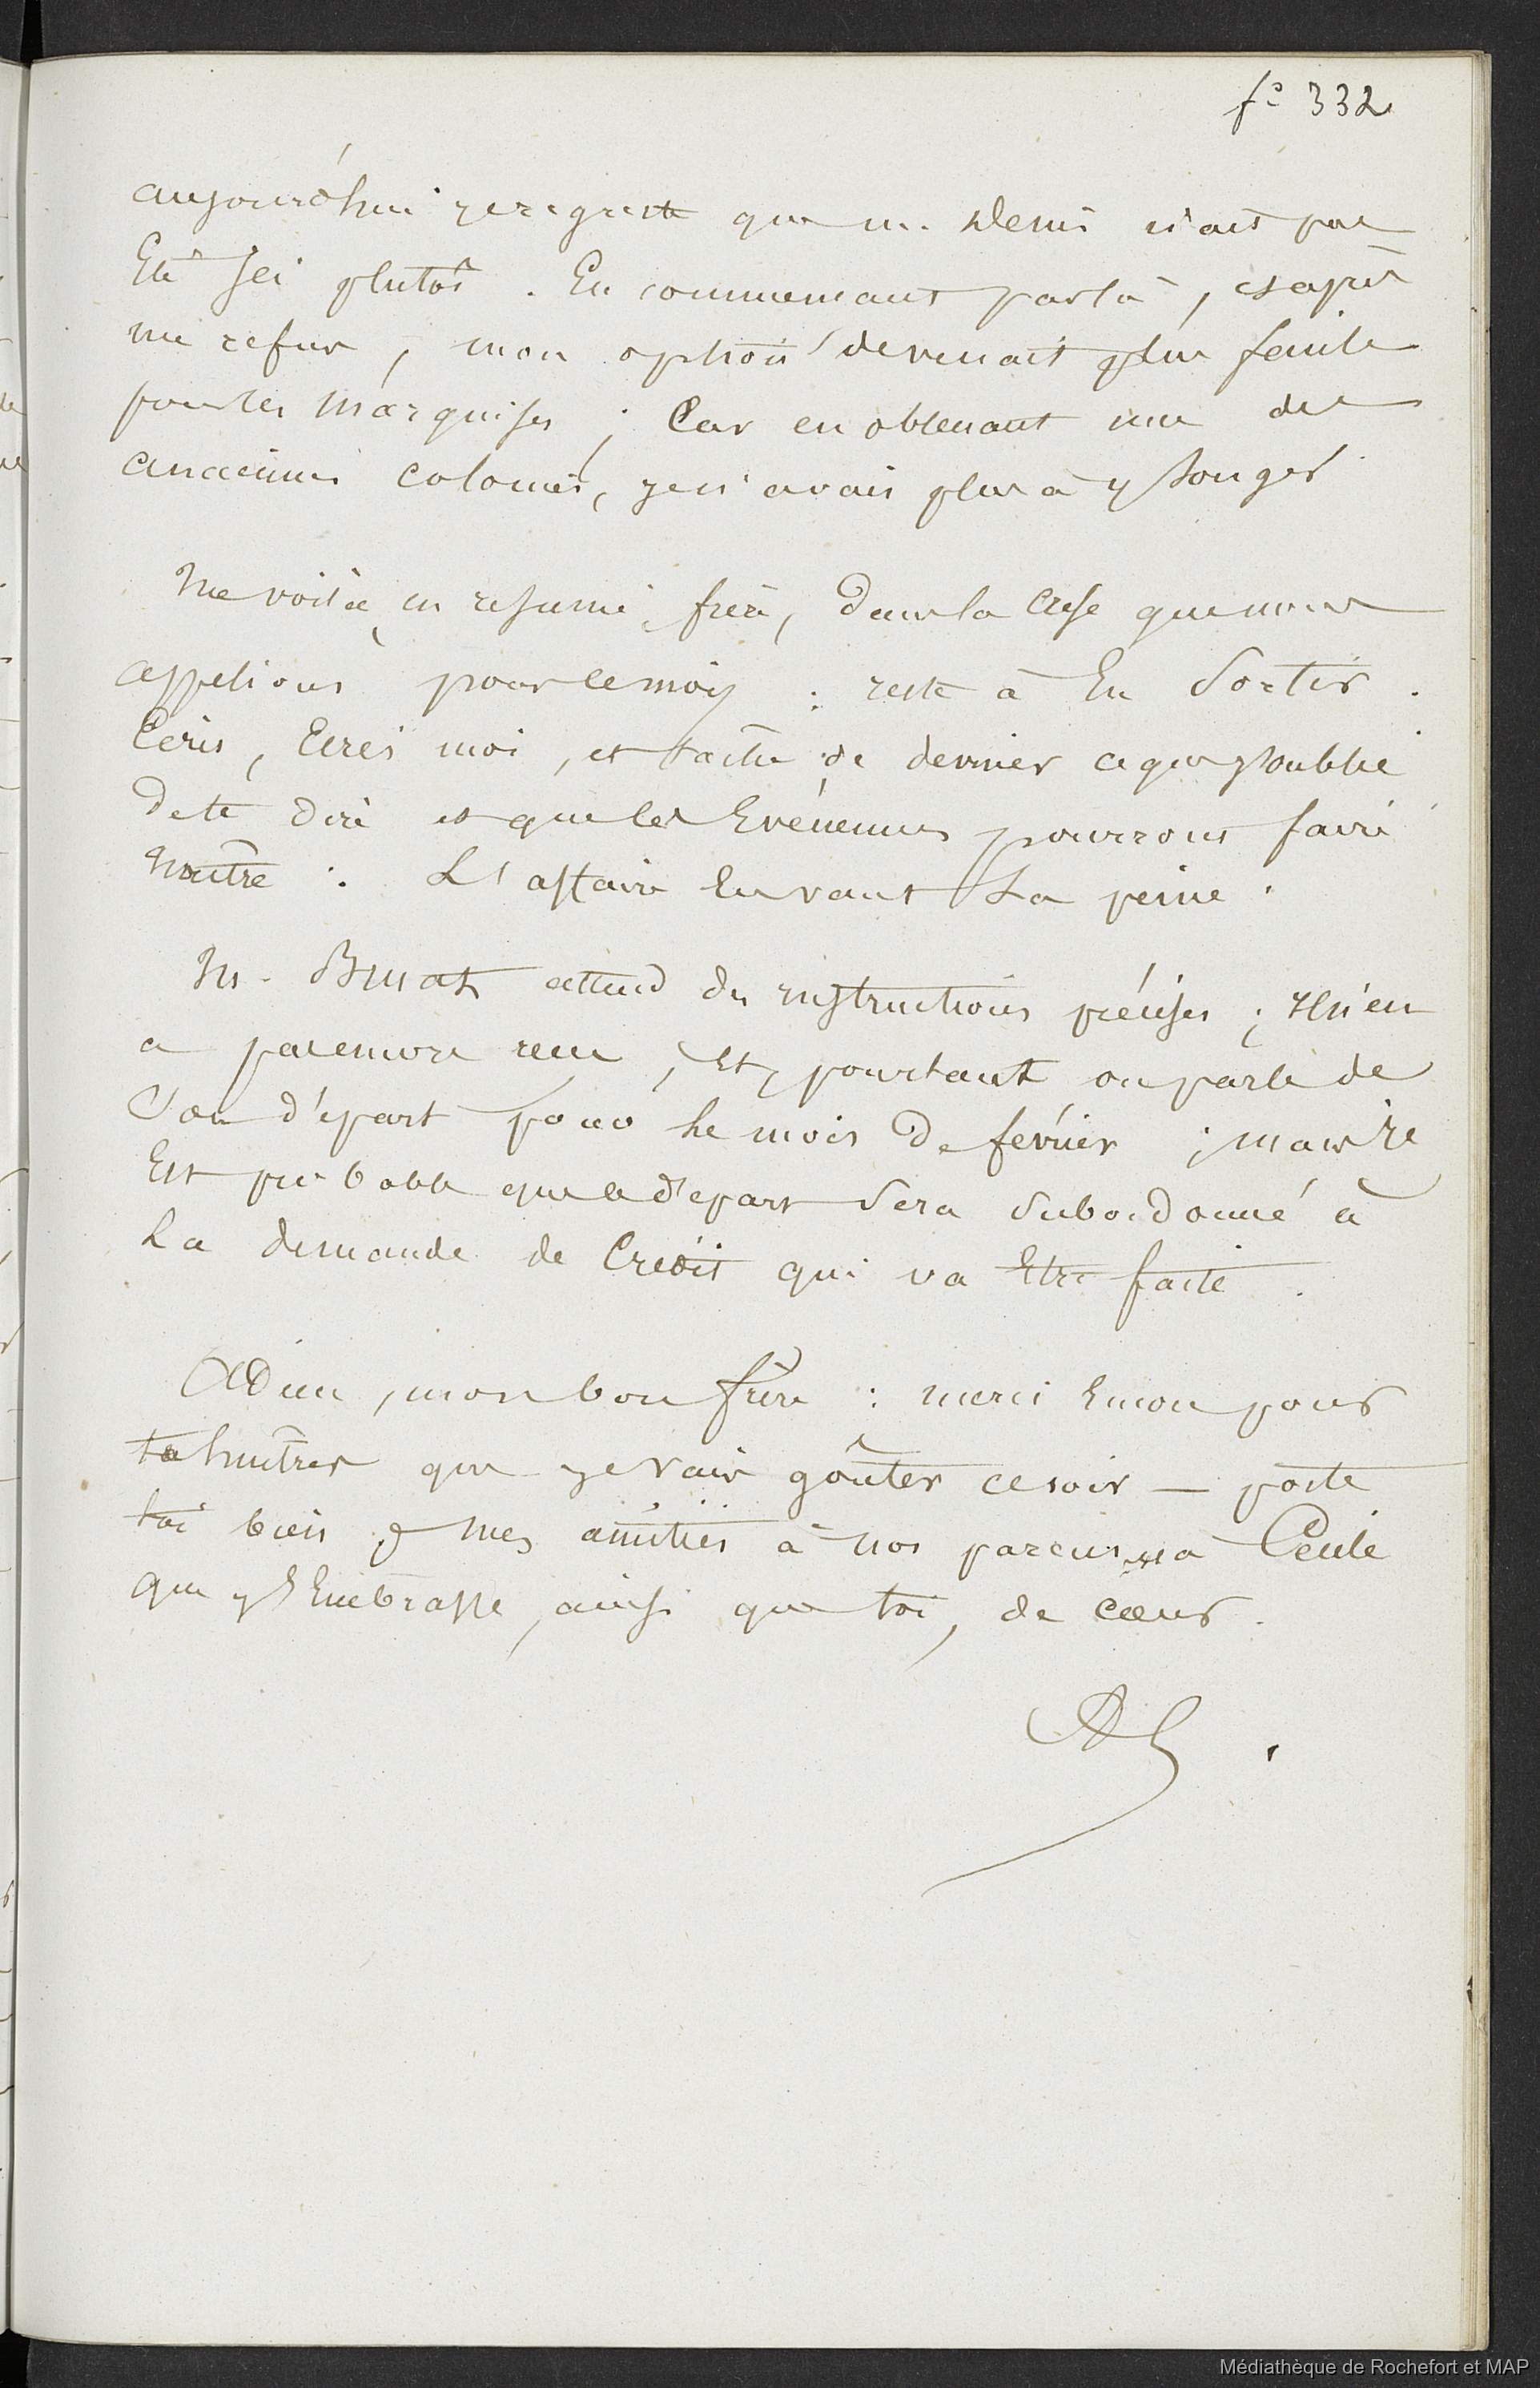 fº 332
aujourd'hui je regrette que m. Denis n'ait pas
Eté Ici plutôt. En commencant par là, et après
un refus, mon option devenait plus facile
pour les Marquises ; Car en obtenant une des
anciennes colonies, je n'avais plus à y Songer
Me voilà, en résumé, frère, dans la Crise que nous
appelions pour le moy : reste à En Sortir.
Ecris, Ecris moi, et tache de deviner ce que j'oublie
de te dire et que les Evénemens pourront faire
naître : L'affaire En vaut La peine.
M. Bruat attend des instructions précises ; Il n'en
a pas encore recu, Et pourtant on parle de
Son départ pour le mois De février ; mais Il
Est probable que le départ Sera Subordonné à
La demande de Crédit qui va Etre faite.
Adieu, mon bon frère : merci Emon pour
ta huîtres que je vais goûter ce soir — porte
toi bien & mes amitiés à nos parens, à Cécile
que j'Embrasse, ainsi que toi, de cœur.
Médiathèque de Rochefort et MAP